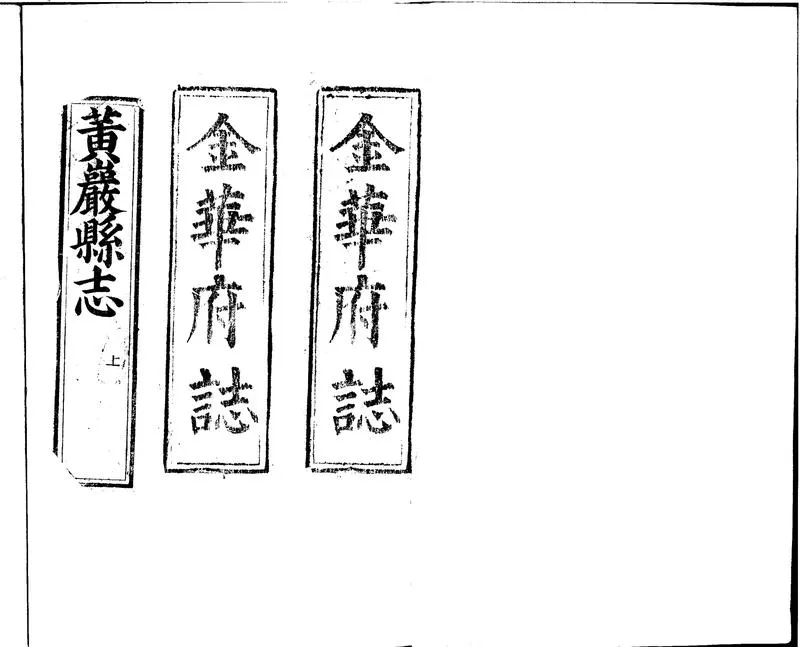 金華府誌
金華府誌
黃巖縣志
上